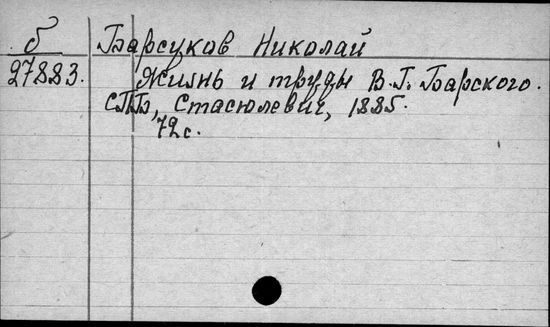 б Барсуков Николай
27883. Жизнь и труды В.Г. Барского.
СПБ, Стасюлевич, 1885.
72 с.